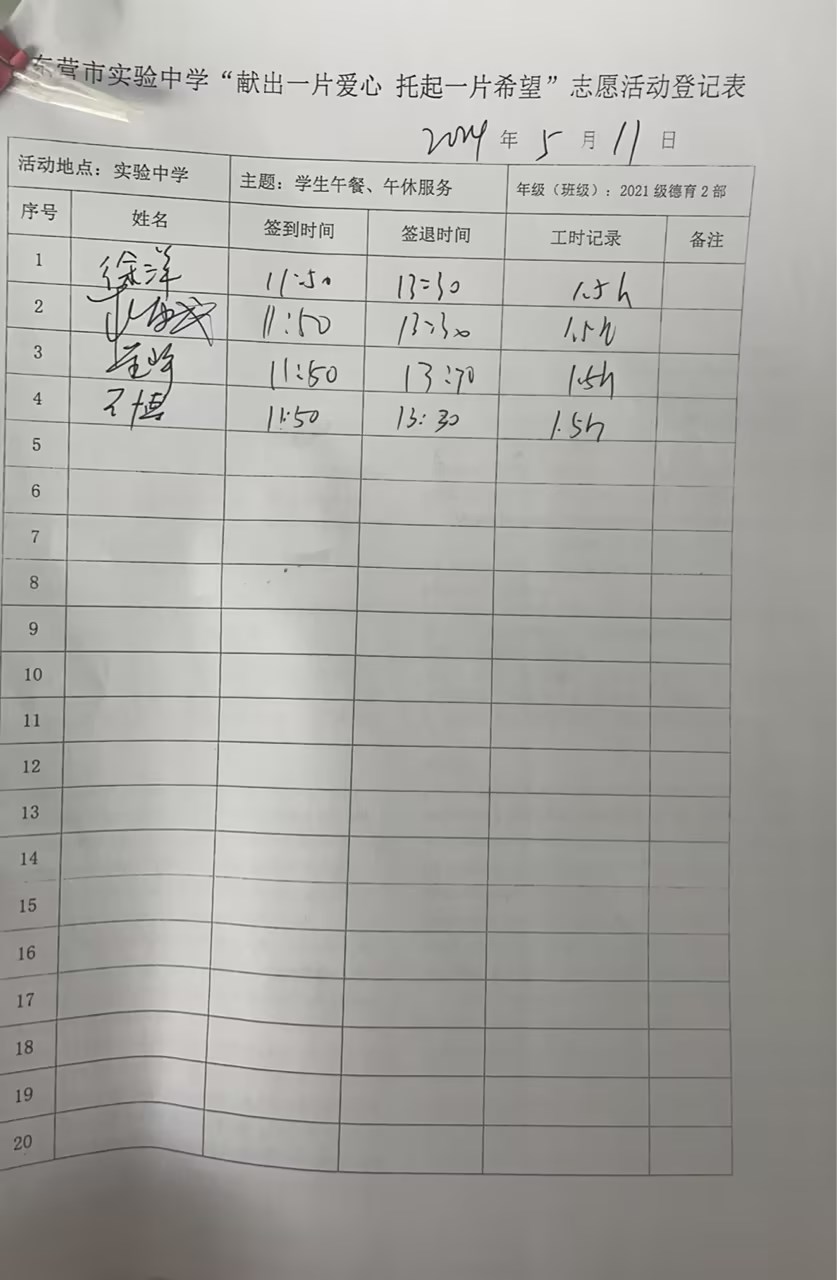 东营市实验中学“献出一片爱心 托起一片希望”志愿活动登记表
2024 年 5 月 11 日
活动地点：实验中学 主题：学生午餐、午休服务 年级（班级）：2021 级德育 2 部
序号 姓名 签到时间 签退时间 工时记录 备注
1 徐洋 11:50 13:30 1.5h
2 11:50 13:30 1.5h
3 11:50 13:30 1.5h
4 11:50 13:30 1.5h
5
6
7
8
9
10
11
12
13
14
15
16
17
18
19
20